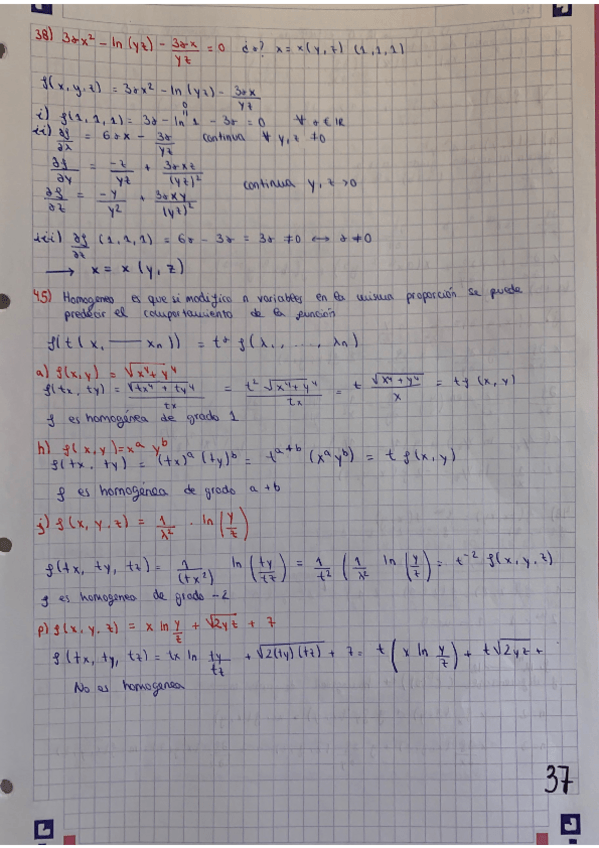 38) 3αx² - ln (yz) - 3αx/yz = 0 ¿α? x = x(y, z) (1, 1, 1)
f(x, y, z) = 3αx² - ln (yz) - 3αx/yz
i) f(1, 1, 1) = 3α - ln 1 - 3α = 0 ∀ α ∈ ℝ
0
ii) ∂f/∂x = 6αx - 3α/yz continua ∀ y, z ≠ 0
∂f/∂y = -z/yz + 3αxz/(yz)²
continua y, z > 0
∂f/∂z = -y/y² + 3αxy/(yz)²
iii) ∂f/∂x (1, 1, 1) = 6α - 3α = 3α ≠ 0 ↔ α ≠ 0
→ x = x (y, z)
45) Homogeneo es que si modifico n variables en la misma proporción se puede
predecir el comportamiento de la función
f(t (x, — xn)) = tᵅ f(x, ....., xn)
a) f(x, y) = √x⁴+y⁴
f(tx, ty) = √tx⁴ + ty⁴/tx = t² √x⁴+y⁴/tx = t √x⁴+y⁴/x = t f (x, y)
f es homogénea de grado 1
h) f(x, y) = xᵃ yᵇ
f(tx, ty) = (tx)ᵃ (ty)ᵇ = tᵃ⁺ᵇ (xᵃyᵇ) = t f(x, y)
f es homogénea de grado a + b
j) f(x, y, z) = 1/x² · ln (y/z)
f(tx, ty, tz) = 1/(tx²) ln (ty/tz) = 1/t² (1/x² ln (y/z) = t⁻² f(x, y, z)
f es homogenea de grado -2
p) f(x, y, z) = x ln y/z + √2yz + 7
f (tx, ty, tz) = tx ln ty/tz + √2(ty)(tz) + 7 = t (x ln y/z) + t√2yz +
No es homogenea
37